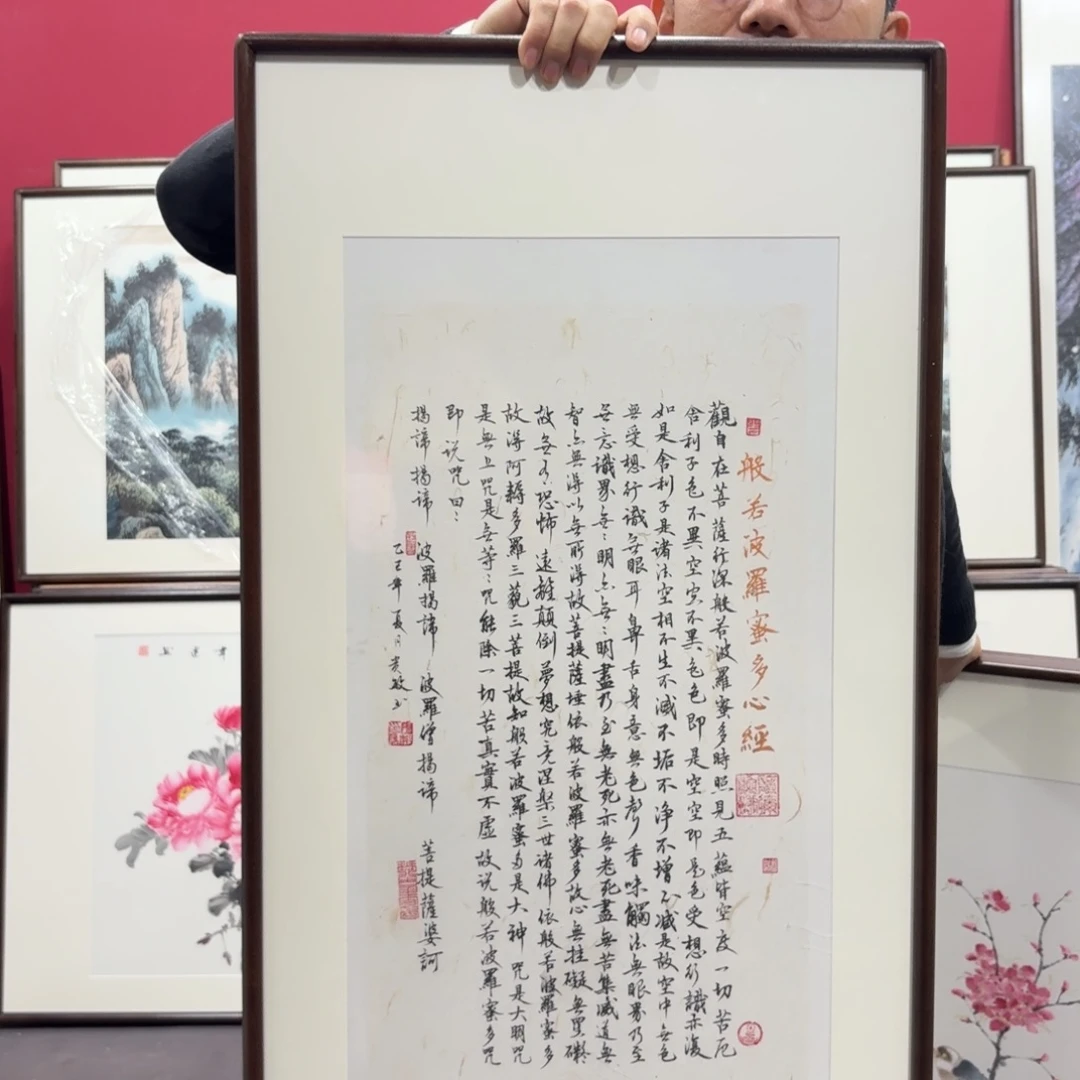 般若波羅蜜多心經
觀自在菩薩行深般若波羅蜜多時照見五蘊皆空度一切苦厄
舍利子色不異空空不異色色即是空空即是色受想行識亦復
如是舍利子是諸法空相不生不滅不垢不净不增不減是故空中無色
無受想行識無眼耳鼻舌身意無色聲香味觸法無眼界乃至
無意識界無:明亦無:明盡乃至無老死亦無老死盡無苦集滅道無
智亦無得以無所得故菩提薩埵依般若波羅蜜多故心無挂礙無罣礙
故無有恐怖遠離顛倒夢想究竟涅槃三世諸佛依般若波羅蜜多
故得阿耨多羅三藐三菩提故知般若波羅蜜多是大神咒是大明咒
是無上咒是無等:咒能除一切苦真實不虛故说般若波羅蜜多咒
即说咒曰:
揭諦揭諦 波羅揭諦 波羅僧揭諦 菩提薩婆訶
乙巳年夏月